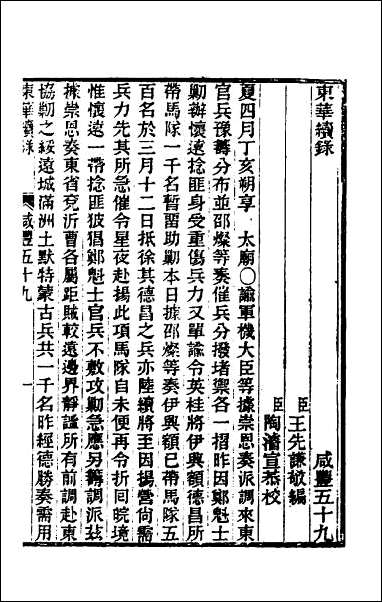 東華續錄
咸豐五十九
臣王先謙敬編
臣陶濬宣恭校
夏四月丁亥朔享　太廟〇諭軍機大臣等據崇恩奏派調來東
官兵豫籌分布並邵燦等奏催兵分撥堵禦各一摺昨因鄭魁士
勦辦懷遠捻匪身受重傷兵力又單諭令英桂將伊興額德昌所
帶馬隊一千名暫留助勦本日據邵燦等奏伊興額已帶馬隊五
百名於三月十二日抵徐其德昌之兵亦陸續將至因揚營尙需
兵力先其所急催令星夜赴揚此項馬隊自未便再令折回皖境
惟懷遠一帶捻匪披猖鄭魁士官兵不敷攻勦急應另籌調派茲
據崇恩奏東省兗沂曹各屬距賊較遠邊界靜謐所有前調赴東
協勦之綏遠城滿洲土默特蒙古兵共一千名昨經德勝奏需用
東華續錄　咸豐五十九　一